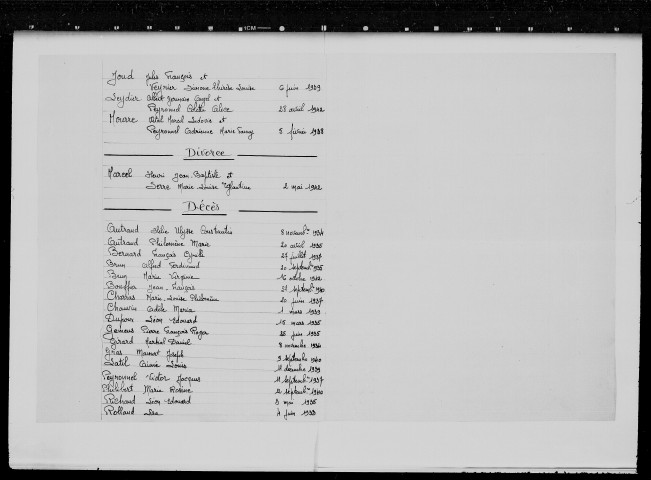 1CM
Joud Jules François et
Veyrier Simone Thérèse Louise 6 juin 1939
Leydier Albert Germain et
Peyronnel Odette Alice 28 avril 1942
Mourre Marcel et
Peyronnel Adrienne Marie 5 février 1938
Divorce
Marcel Henri Jean Baptiste et
Serre Marie Louise Eglantine 2 mai 1942
Décès
Autrand Ulysse Constantin 8 novembre 1934
Autrand Philomène Marie 20 avril 1936
Bernard François Cyrille 27 juillet 1937
Brun Alfred Ferdinand 20 septembre 1935
Brun Marie Virginie 16 octobre 1942
Bouffier Jean François septembre 1940
Charras Marie Louise Philomène 20 juin 1937
Chauvin Adèle Maria 1 mars 1939
Dupoux Léon Edouard 15 mars 1935
Gemens Pierre François Roger 26 juin 1935
Girard Martial Daniel 8 novembre 1936
Gras Joseph 9 septembre 1940
Latil Aimé Louis décembre 1939
Peyronnel Victor Jacques 11 septembre 1937
Philibert Marie Rosine 2 septembre 1940
Richaud Léon Edouard 3 mai 1935
Rolland Léa 4 juin 1933